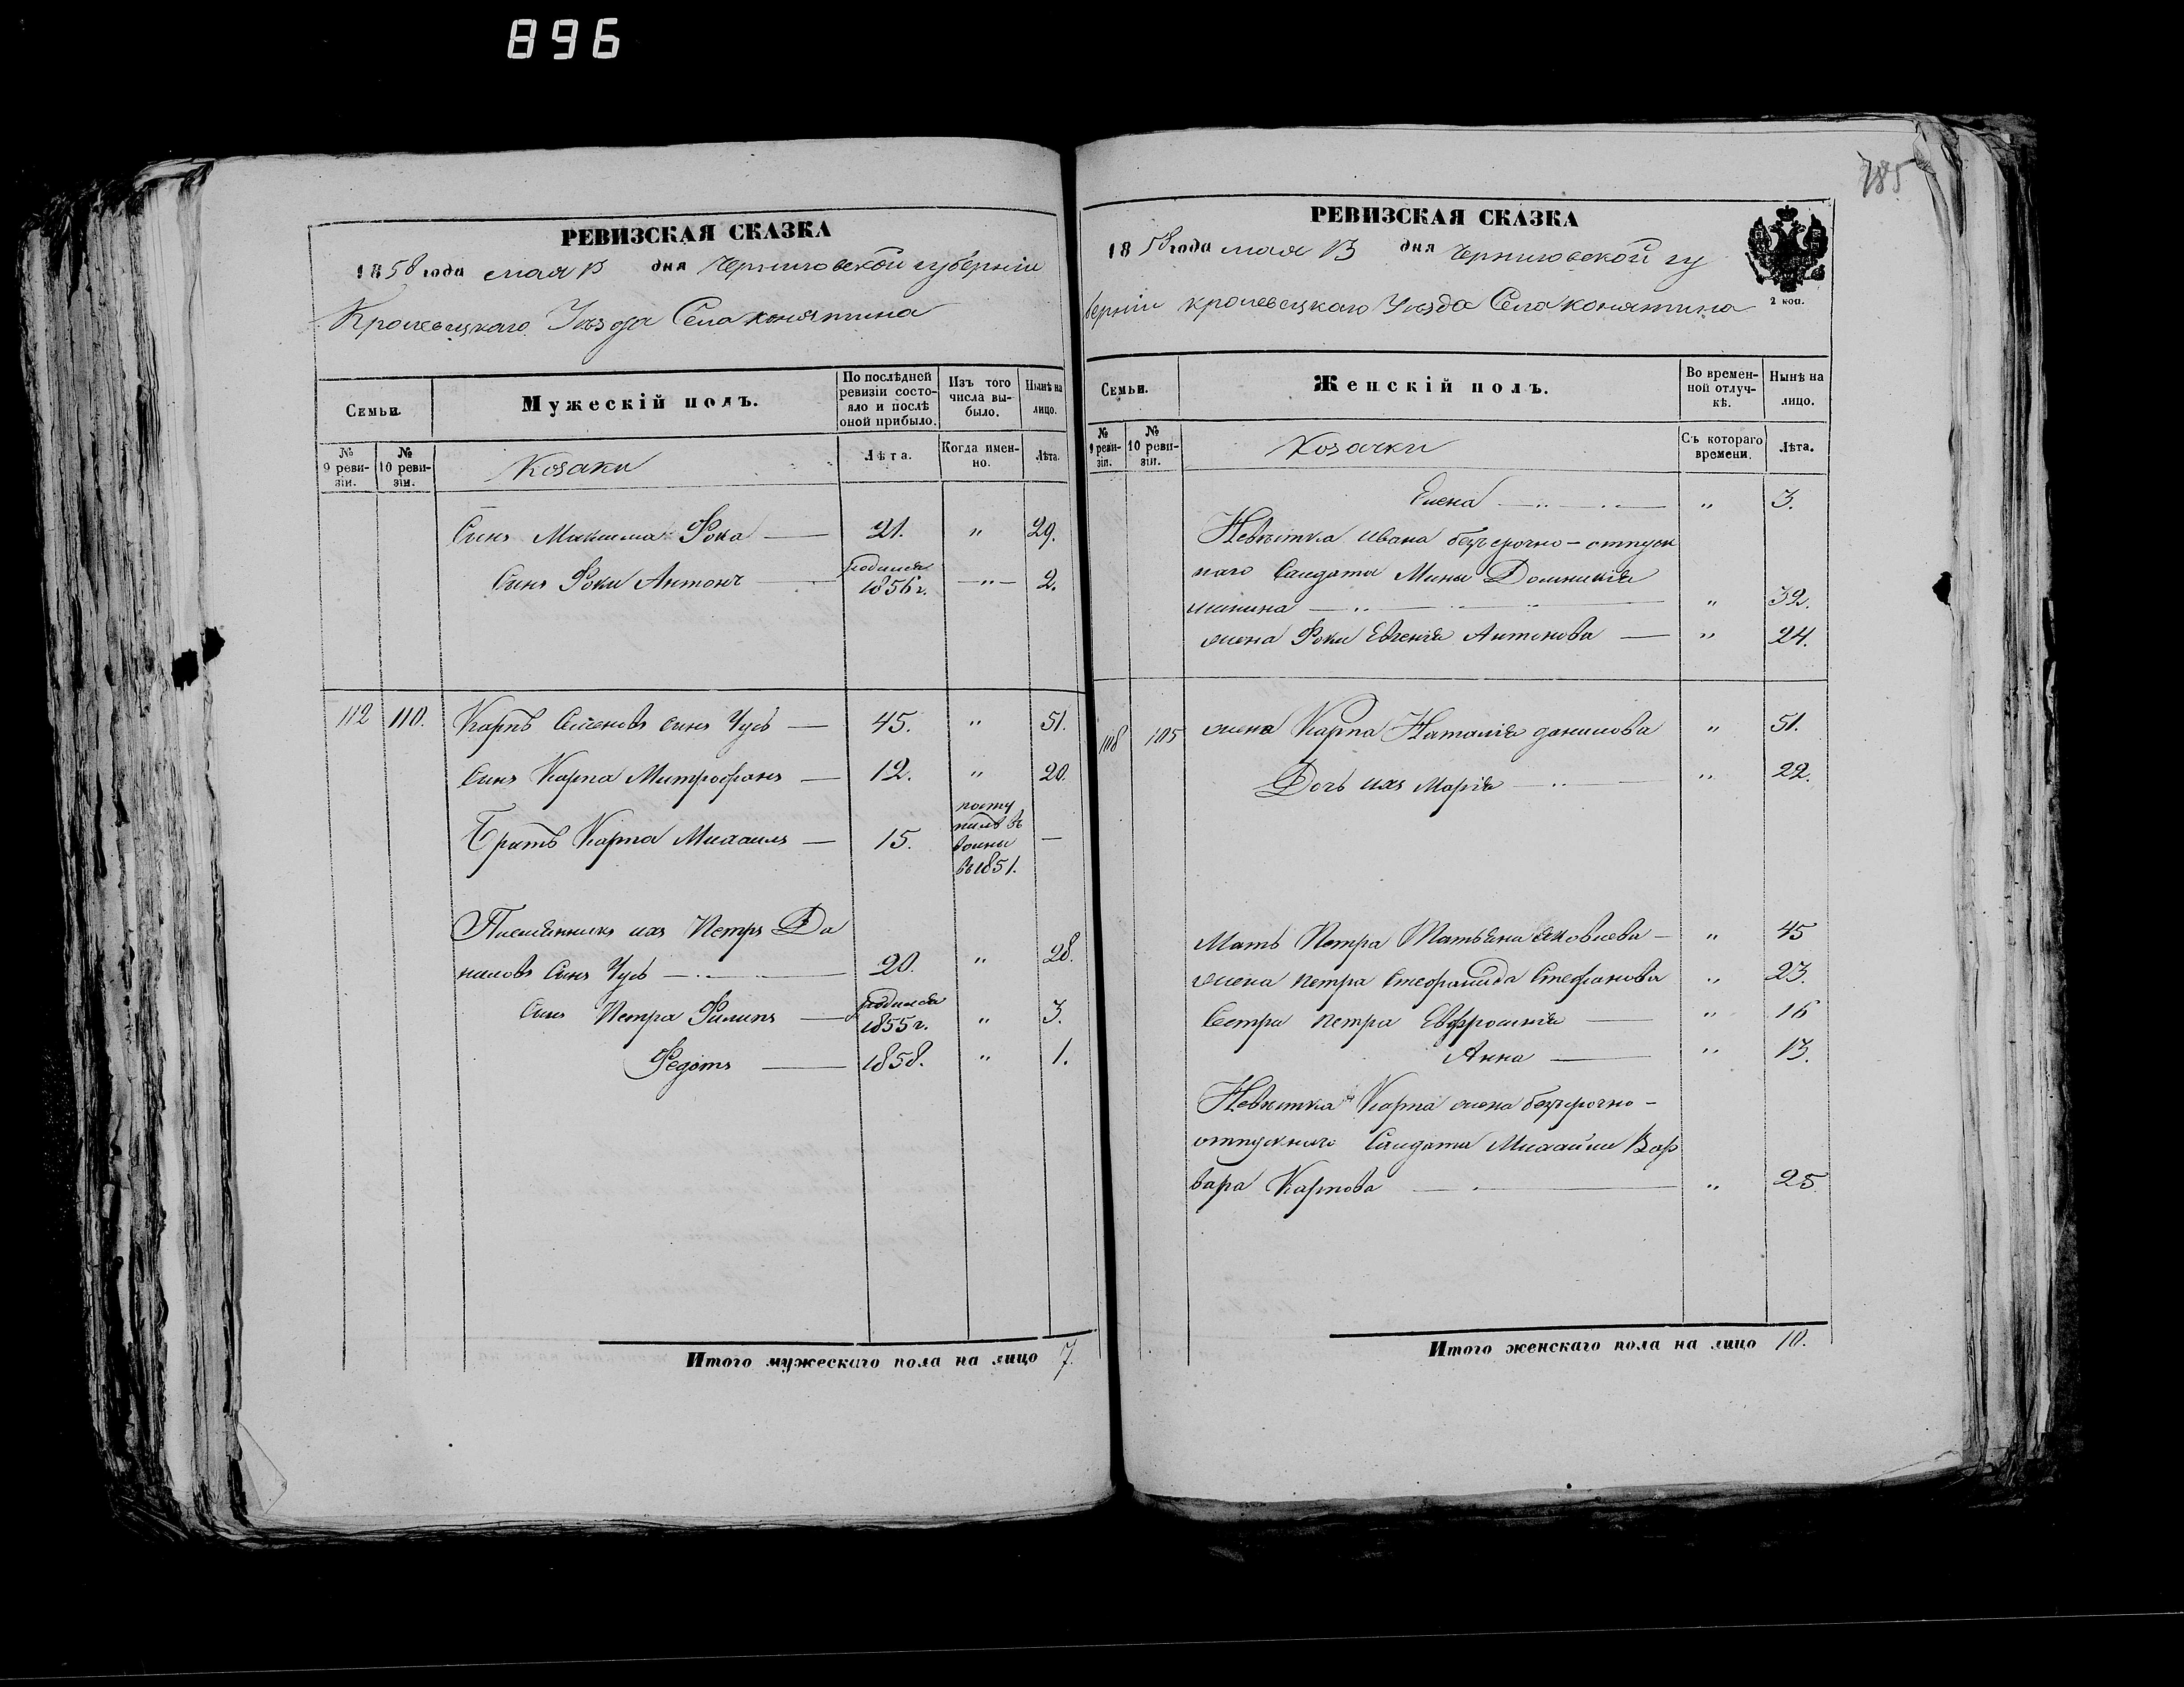 896
785
РЕВИЗСКАЯ СКАЗКА
1858 года мая 13 дня Черниговской губерніи
Кролевецкаго Уѣзда Села конятина
Семьи.
Мужескій полъ.
По послѣдней ревизіи состояло и послѣ оной прибыло.
Изъ того числа выбыло.
Нынѣ на лицо.
№ 9 ревизіи.
№ 10 ревизіи.
Козаки
Лѣта.
Когда именно.
Лѣта.
Сынъ Максима Фока — 21. " 29.
Сынъ Фоки Антонъ — родился 1856 г. — " — 2.
112 110. Карпъ Семеновъ сынъ Чусь — 45. " 51.
Сынъ Карпа Митрофанъ — 12. " 20.
Братъ Карпа Михаилъ — 15. посту
пилъ въ
воины
въ 1851. —
Племянникъ ихъ Петръ Да
ниловъ Сынъ Чусь — 20. " 28.
Сынъ Петра Филипъ — родился 1855 г. " 3.
Федотъ — 1858. " 1.
Итого мужескаго пола на лицо 7.
РЕВИЗСКАЯ СКАЗКА
1858 года мая 13 дня Черниговской гу
берніи кролевецкаго Уѣзда Села конятина
2 коп.
Семьи.
Женскій полъ.
Во временной отлучкѣ.
Нынѣ на лицо.
№ 9 ревизіи.
№ 10 ревизіи.
Козачки
Съ котораго времени.
Лѣта.
Елена — " 3.
Невѣстка Ивана безсрочно-отпуск
наго Салдата Мины Домникія
минина — " 32.
жена Фоки Евгенія Антонова — " 24.
108 105 жена Карпа Наталія данилова " 51.
Дочь ихъ Марія — " 22.
Мать Петра Татьяна яковлева — " 45
жена петра Стефанида Стефанова " 23.
Сестра петра Евфросинія — " 16
Анна — " 13.
Невѣстка Карпа жена безсрочно-
отпускнаго Салдата Михайла Вар
вара Карпова — " 25.
Итого женскаго пола на лицо 10.